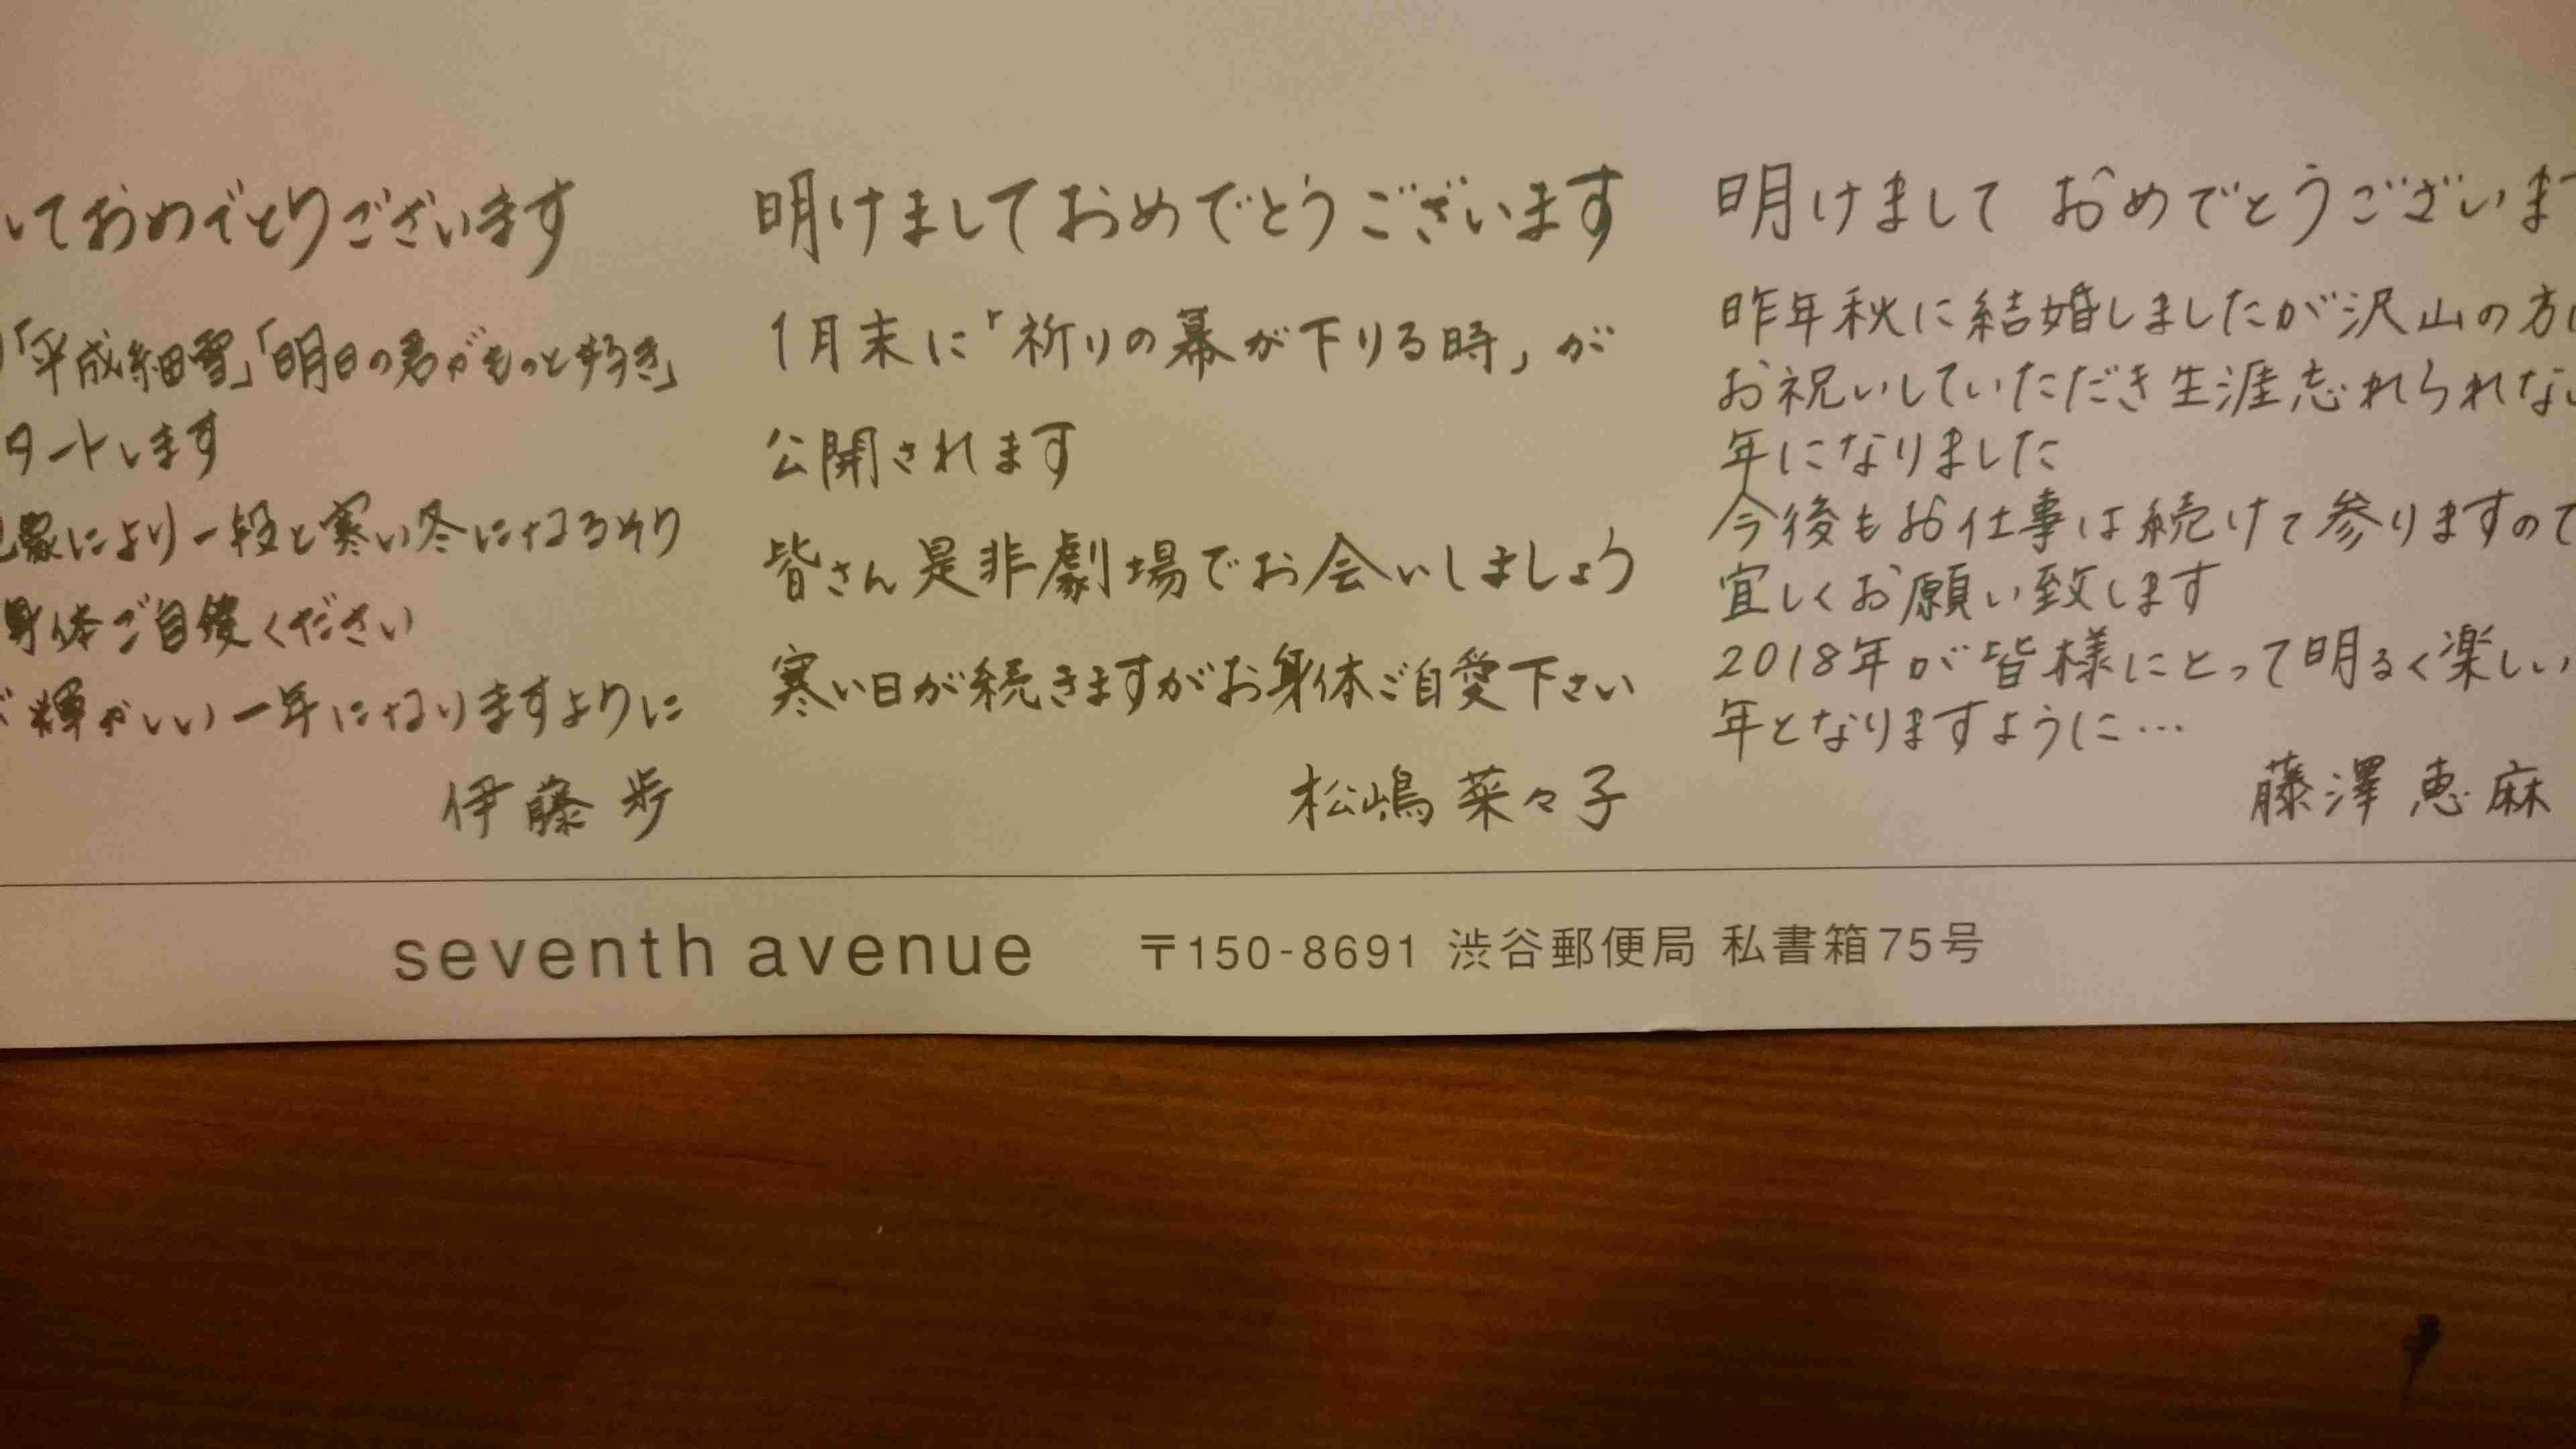 いておめでとうございます
「平成細雪」「明日の君がもっと好き」
タートします
により一段と寒い冬になるそう
身体ご自愛ください
輝かしい一年になりますように
伊藤 歩
明けましておめでとうございます
1月末に「祈りの幕が下りる時」が
公開されます
皆さん是非劇場でお会いしましょう
寒い日が続きますがお身体ご自愛下さい
松嶋 菜々子
明けまして おめでとうございます
昨年秋に結婚しましたが沢山の方に
お祝いしていただき生涯忘れられない
年になりました
今後もお仕事は続けて参りますので
宜しくお願い致します
2018年が皆様にとって明るく楽しい
年となりますように…
藤澤 恵麻
seventh avenue 〒150-8691 渋谷郵便局 私書箱75号